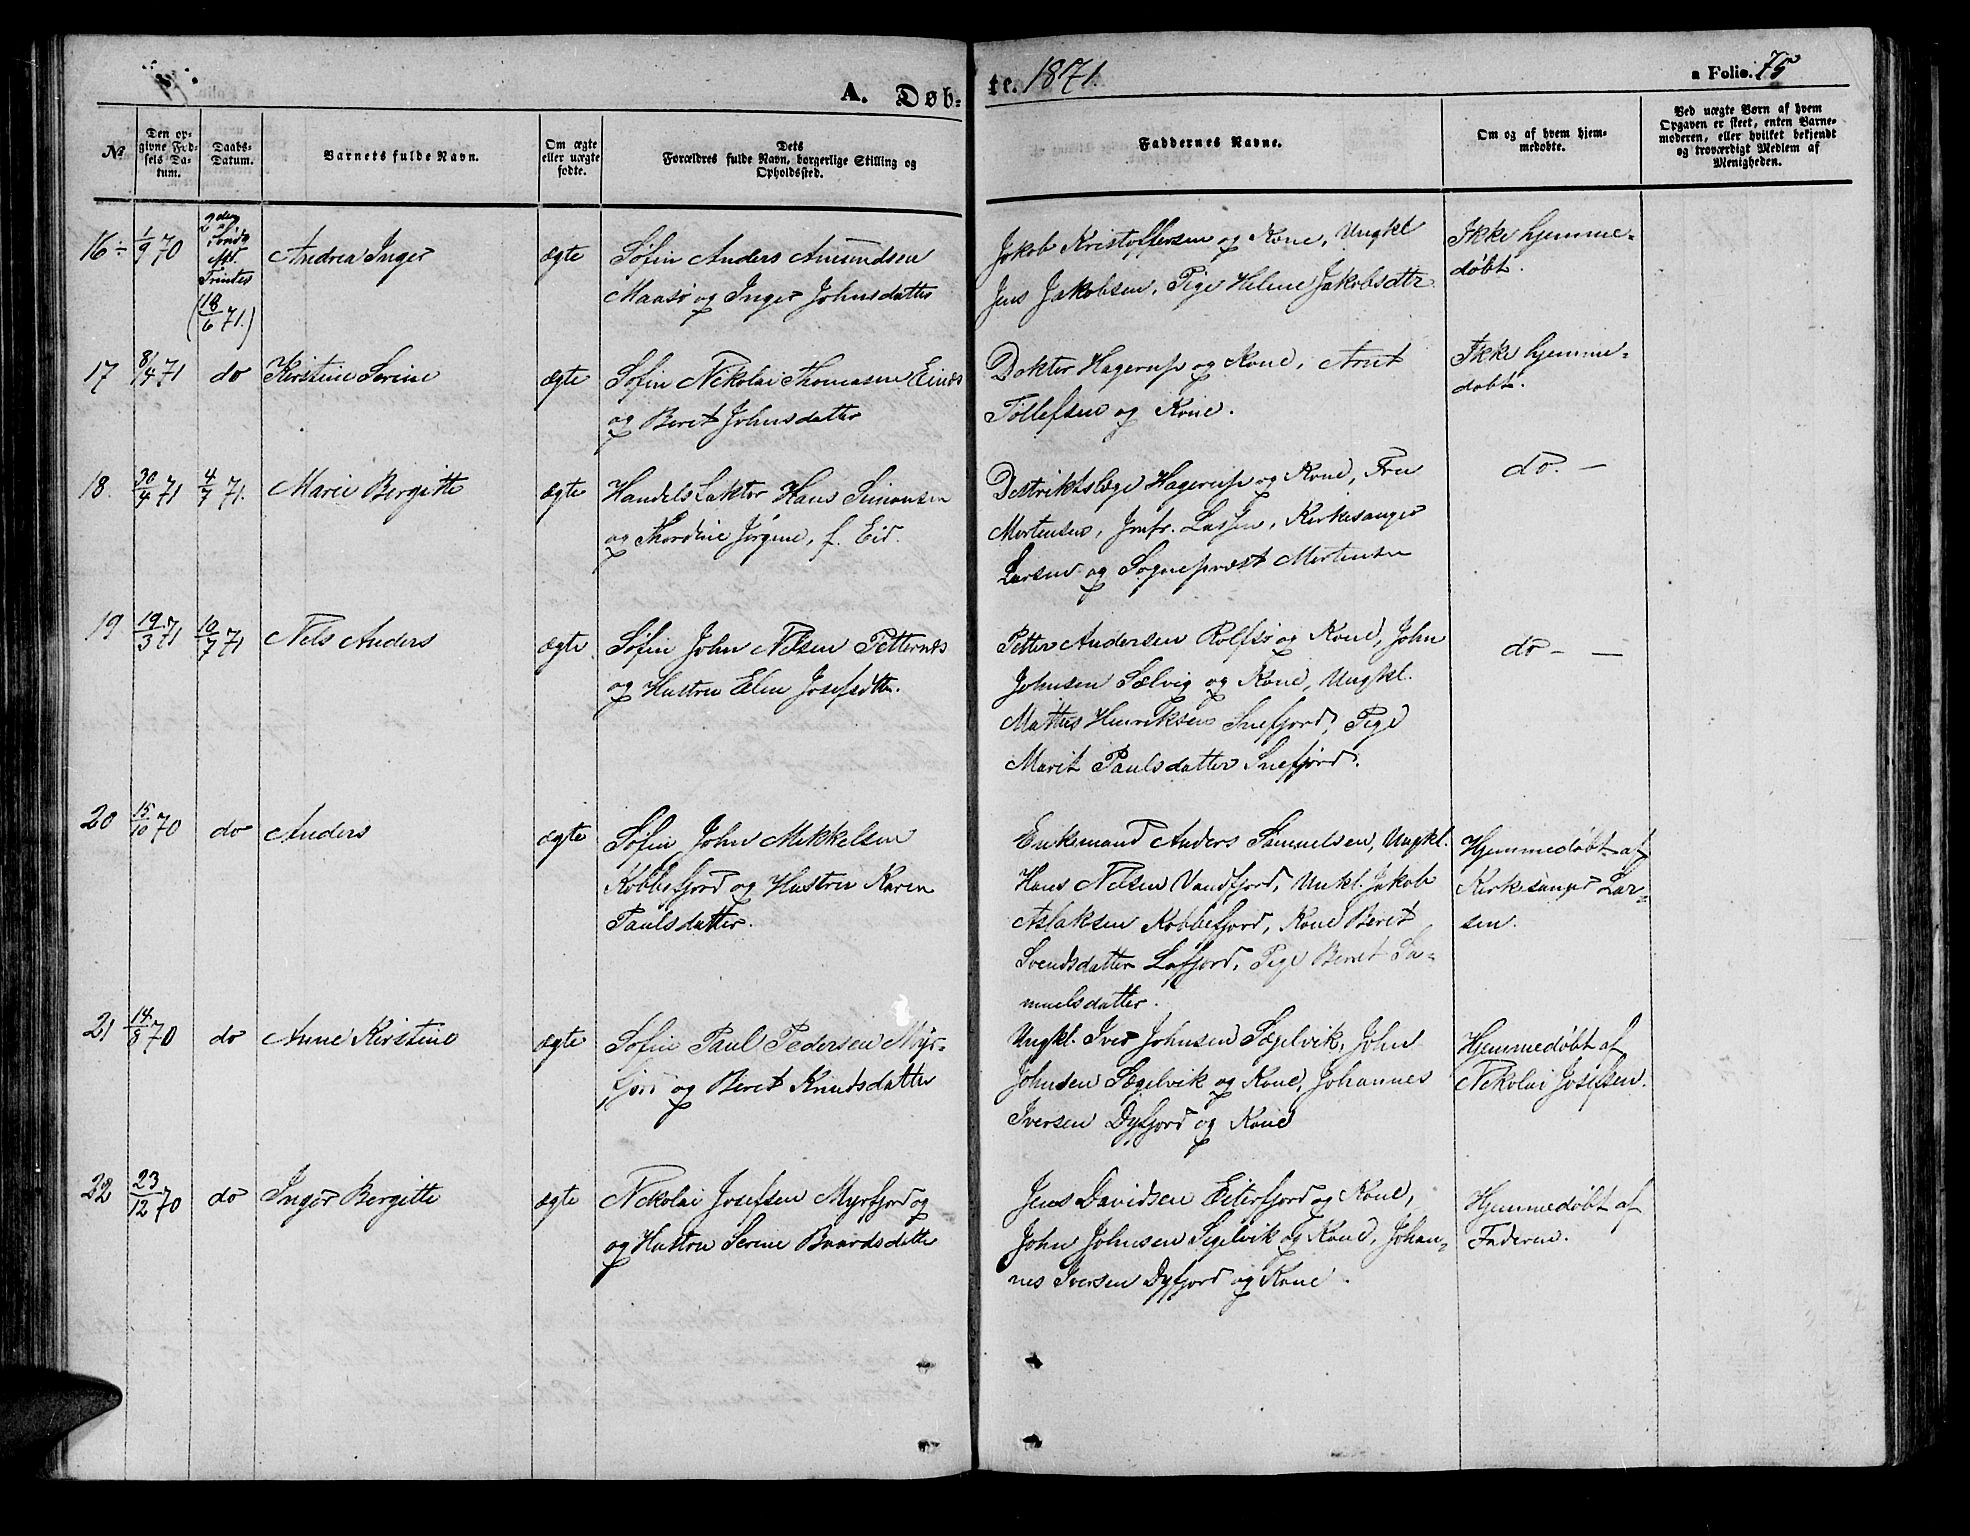 A. Døb-
te. 1871.
a Folio. 75
No
Den op-
givne Fød-
sels Da-
tum.
Daabs-
Datum.
Barnets fulde Navn.
Om ægte
eller uægte
fødte.
Dets
Forældres fulde Navn, borgerlige Stilling og
Opholdssted.
Faddernes Navne.
Om og af hvem hjem-
medøbte.
Ved uægte Børn af hvem
Opgaven er skeet, enten Barne-
moderen, eller hvilket bekjendt
og troværdigt Medlem af
Menigheden.
16 1/9 70 2den Sønd. eft. Trinites (18/6 71.) Andrea Inger ægte
Søfin Anders Amundsen
Maasø og Inger Johnsdatter
Jakob Kristoffersen og Kone, Ungkl
Jens Jakobsen, Pige Helene Jakobsdtr
Ikke hjemme-
døbt.
17 8/4 71 do Kirstine Serine ægte
Søfin Nikolai Thomasen
og Beret Johnsdatter
Doktor Hagerup og Kone, Arnt
Tollefsen og Kone.
Ikke hjemme-
døbt.
18. 30/4 71 4/7 71. Marie Bergitte ægte
Handelsfaktor Hans Simonsen
og Thordine Jørgine, f. Eid.
Destriktslæge Hagerup og Kone, Fru
Mortensen, Jmfr. Kirkesanger
Larsen og Sognepræst Mortensen
do. —
19 19/3 71 10/7 71 Nels Anders ægte
Søfin John Nelsen Petternes
og Hustru Elen Josefsdttr.
Petter Andersen Rolfsø og Kone, John
Johnsen Sælvig og Kone, Ungkl.
Mattis Henriksen Snefjord, Pige
Marit Paulsdatter Snefjord.
do — —
20 15/10 70 do Anders ægte
Søfin John Mikkelsen
Kobbefjord og Hustru Karen
Paulsdatter.
Enkemand Anders Samuelsen, Ungkl.
Hans Nelsen Vandfjord, Unkl. Jakob
Aslaksen Kobbefjord, Kone Beret
Svendsdatter Lafjord, Pige Beret Sa-
muelsdatter.
Hjemmedøbt af
Kirkesanger Lar-
sen.
21 14/8 70 do Anne Kirstine ægte
Søfin Paul Pedersen Myr-
fjord og Beret Knudsdatter
Ungkl. Iver Johnsen Sægelvik, John
Johnsen Sægelvik og Kone, Johannes
Iversen Dyfjord og Kone
Hjemmedøbt af
Nikolai Josefsen.
22 23/12 70 do Inger Bergitte ægte
Nikolai Josefsen Myrfjord og
og Hustru Serine Baardsdatter
Jens Davidsen Eiterfjord og Kone,
John Johnsen Segelvik og Kone, Johan-
nes Iversen Dyfjord og Kone.
Hjemmedøbt af
Faderen.